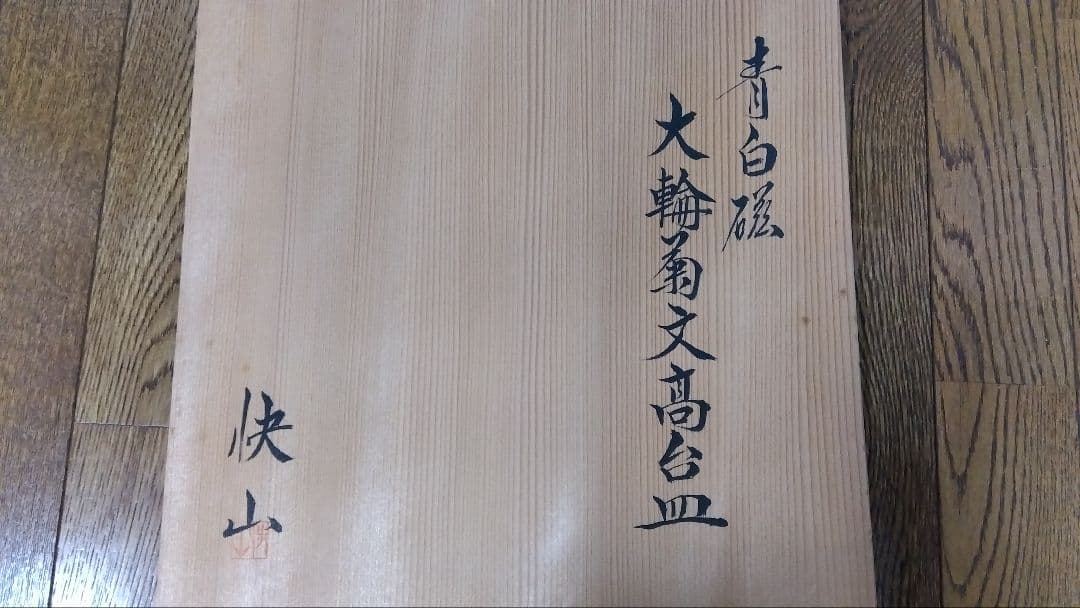 青白磁
大輪菊文高台皿
快山